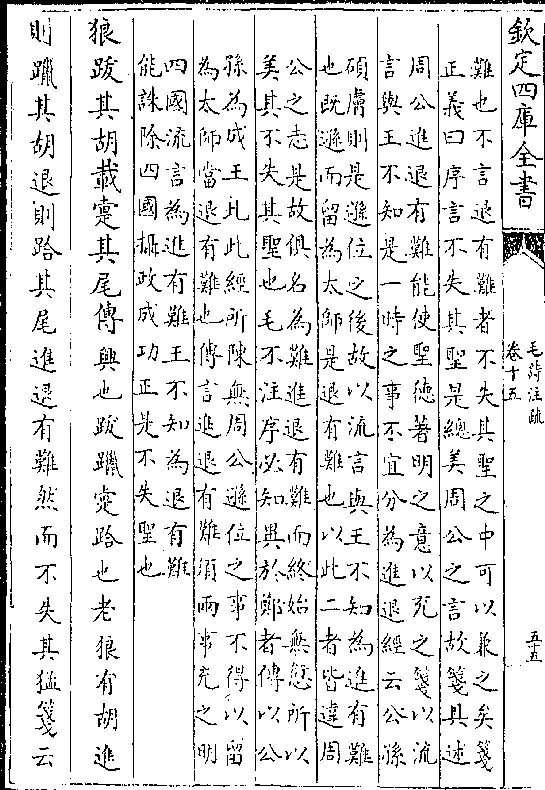 欽定四庫全書
毛詩注疏
卷十五
五十五
難也不言退有難者不失其聖之中可以兼之矣箋
正義曰序言不失其聖是總美周公之言故箋具述
周公進退有難能使聖德著明之意以充之箋以流
言與王不知是一時之事不宜分為進退經云公孫
碩膚則是遜位之後故以流言與王不知為進有難
也既遜而留為太師是退有難也以此二者皆違周
公之志是故俱名為難進退有難而終始無愆所以
美其不失其聖也毛不注序必知異於鄭者傳以公
孫為成王比此經所陳無周公遜位之事不得以留
為太師當退有難也傳言進退有難須兩事充之明
四國流言為進有難王不知為退有難
能誅除四國攝政成功正是不失聖也
狼跋其胡載疐其尾傳興也跋躐疐跲也老狼有胡進
則躐其胡退則跲其尾進退有難然而不失其猛箋云